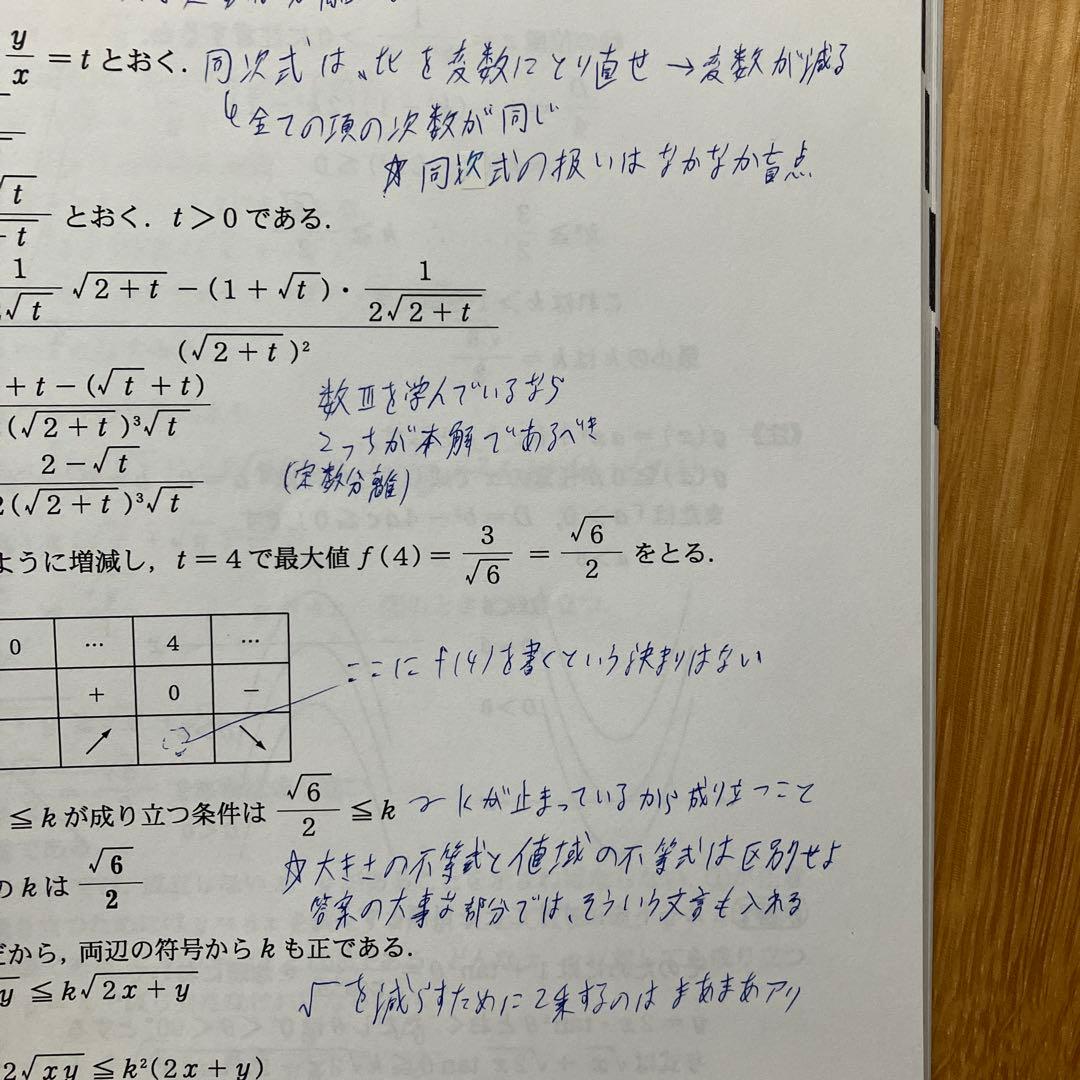 y/x = t とおく. 同次式は〝比を変数にとり直せ → 変数が減る
↳全ての項の次数が同じ
☆ 同次式の扱いはなかなか盲点
√t とおく. t > 0 である.
1/√t √(2+t) − (1+√t)・1/(2√(2+t))
(√(2+t))²
+ t − (√t + t)
(√(2+t))³√t
数Ⅲを学んでいるなら
こっちが本解であるべき
2 − √t
2(√(2+t))³√t
(定数分離)
ように増減し, t = 4 で最大値 f(4) = 3/√6 = √6/2 をとる.
0 … 4 …
ここにf(4)を書くという決まりはない
+ 0 −
↗ ↘
≦ k が成り立つ条件は √6/2 ≦ k 〜 kが止まっているから成り立つこと
の k は √6/2
☆大きさの不等式と値域の不等式は区別せよ
答案の大事な部分では、そういう文言も入れる
だから, 両辺の符号から k も正である.
y ≦ k√(2x+y)
√を減らすために2乗するのはまあまあアリ
2√(xy) ≦ k²(2x+y)